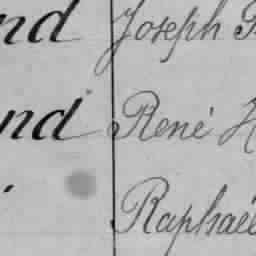 nd Joseph
nd René H
Raphaë